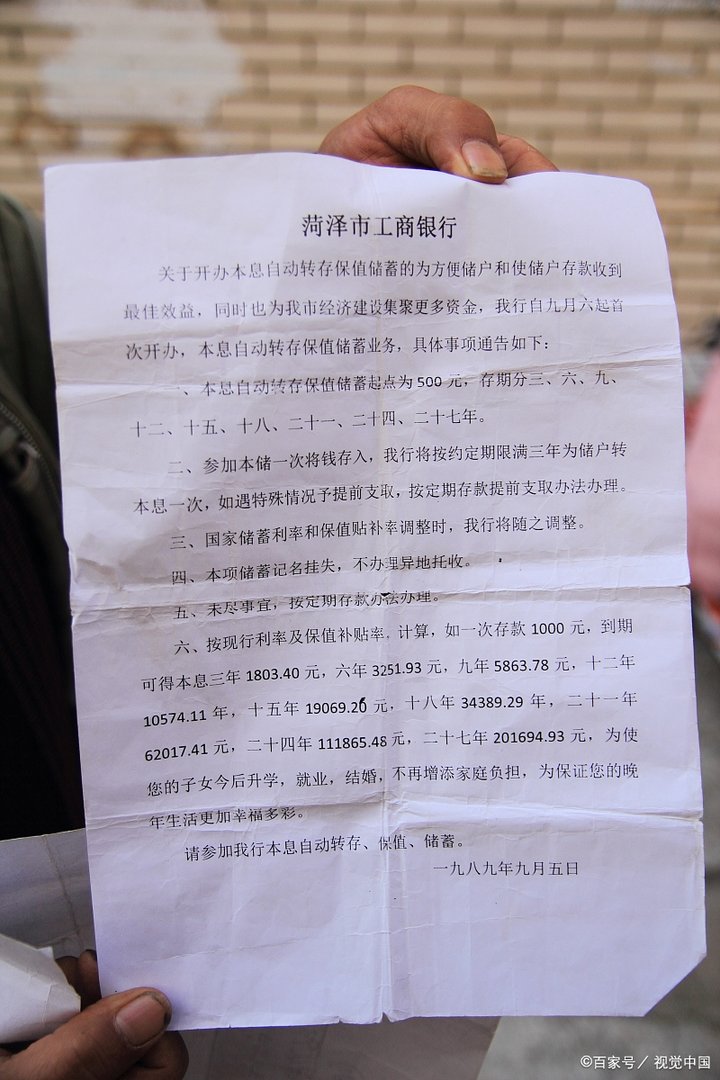 菏泽市工商银行
关于开办本息自动转存保值储蓄的为方便储户和使储户存款收到
最佳效益，同时也为我市经济建设集聚更多资金，我行自九月六起首
次开办，本息自动转存保值储蓄业务，具体事项通告如下：
一、本息自动转存保值储蓄起点为 500 元，存期分三、六、九、
十二、十五、十八、二十一、二十四、二十七年。
二、参加本储一次将钱存入，我行将按约定期限满三年为储户转
本息一次，如遇特殊情况予提前支取，按定期存款提前支取办法办理。
三、国家储蓄利率和保值贴补率调整时，我行将随之调整。
四、本项储蓄记名挂失，不办理异地托收。
五、未尽事宜，按定期存款办法办理。
六、按现行利率及保值补贴率，计算，如一次存款 1000 元，到期
可得本息三年 1803.40 元，六年 3251.93 元，九年 5863.78 元，十二年
10574.11 年，十五年 19069.20 元，十八年 34389.29 年，二十一年
62017.41 元，二十四年 111865.48 元，二十七年 201694.93 元，为使
您的子女今后升学，就业，结婚，不再增添家庭负担，为保证您的晚
年生活更加幸福多彩。
请参加我行本息自动转存、保值、储蓄。
一九八九年九月五日
©百家号／视觉中国